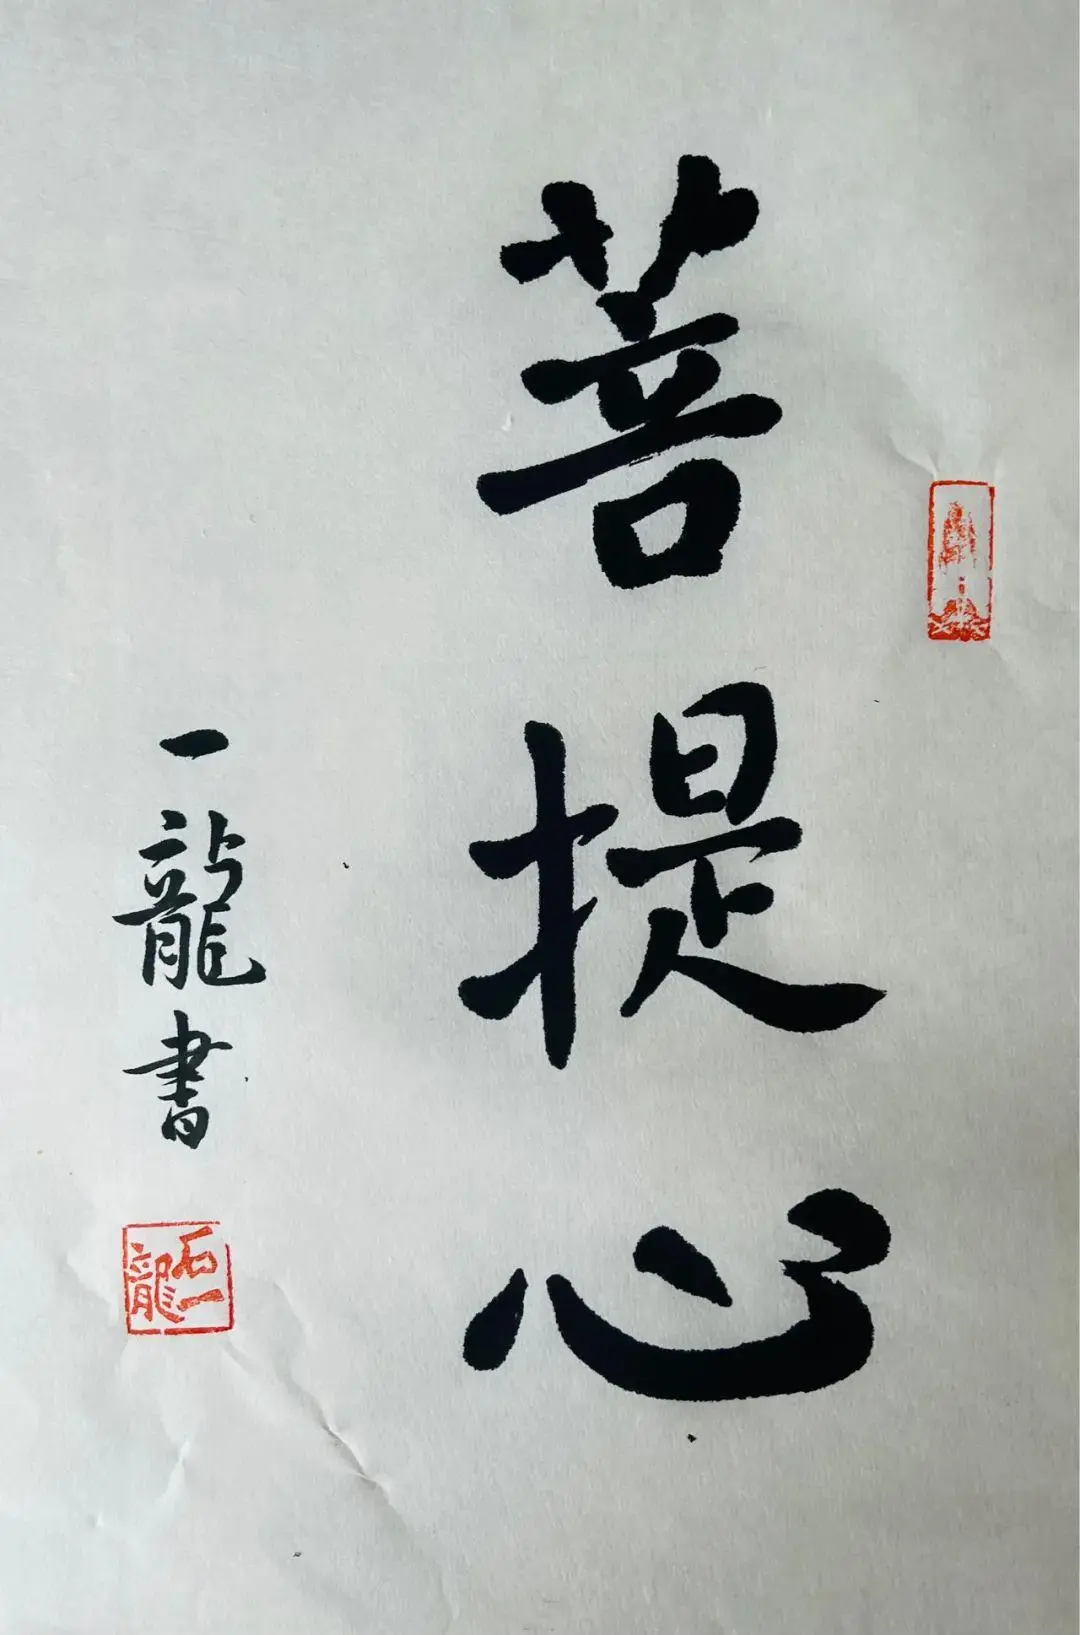 菩提心
一龍書
石一龍